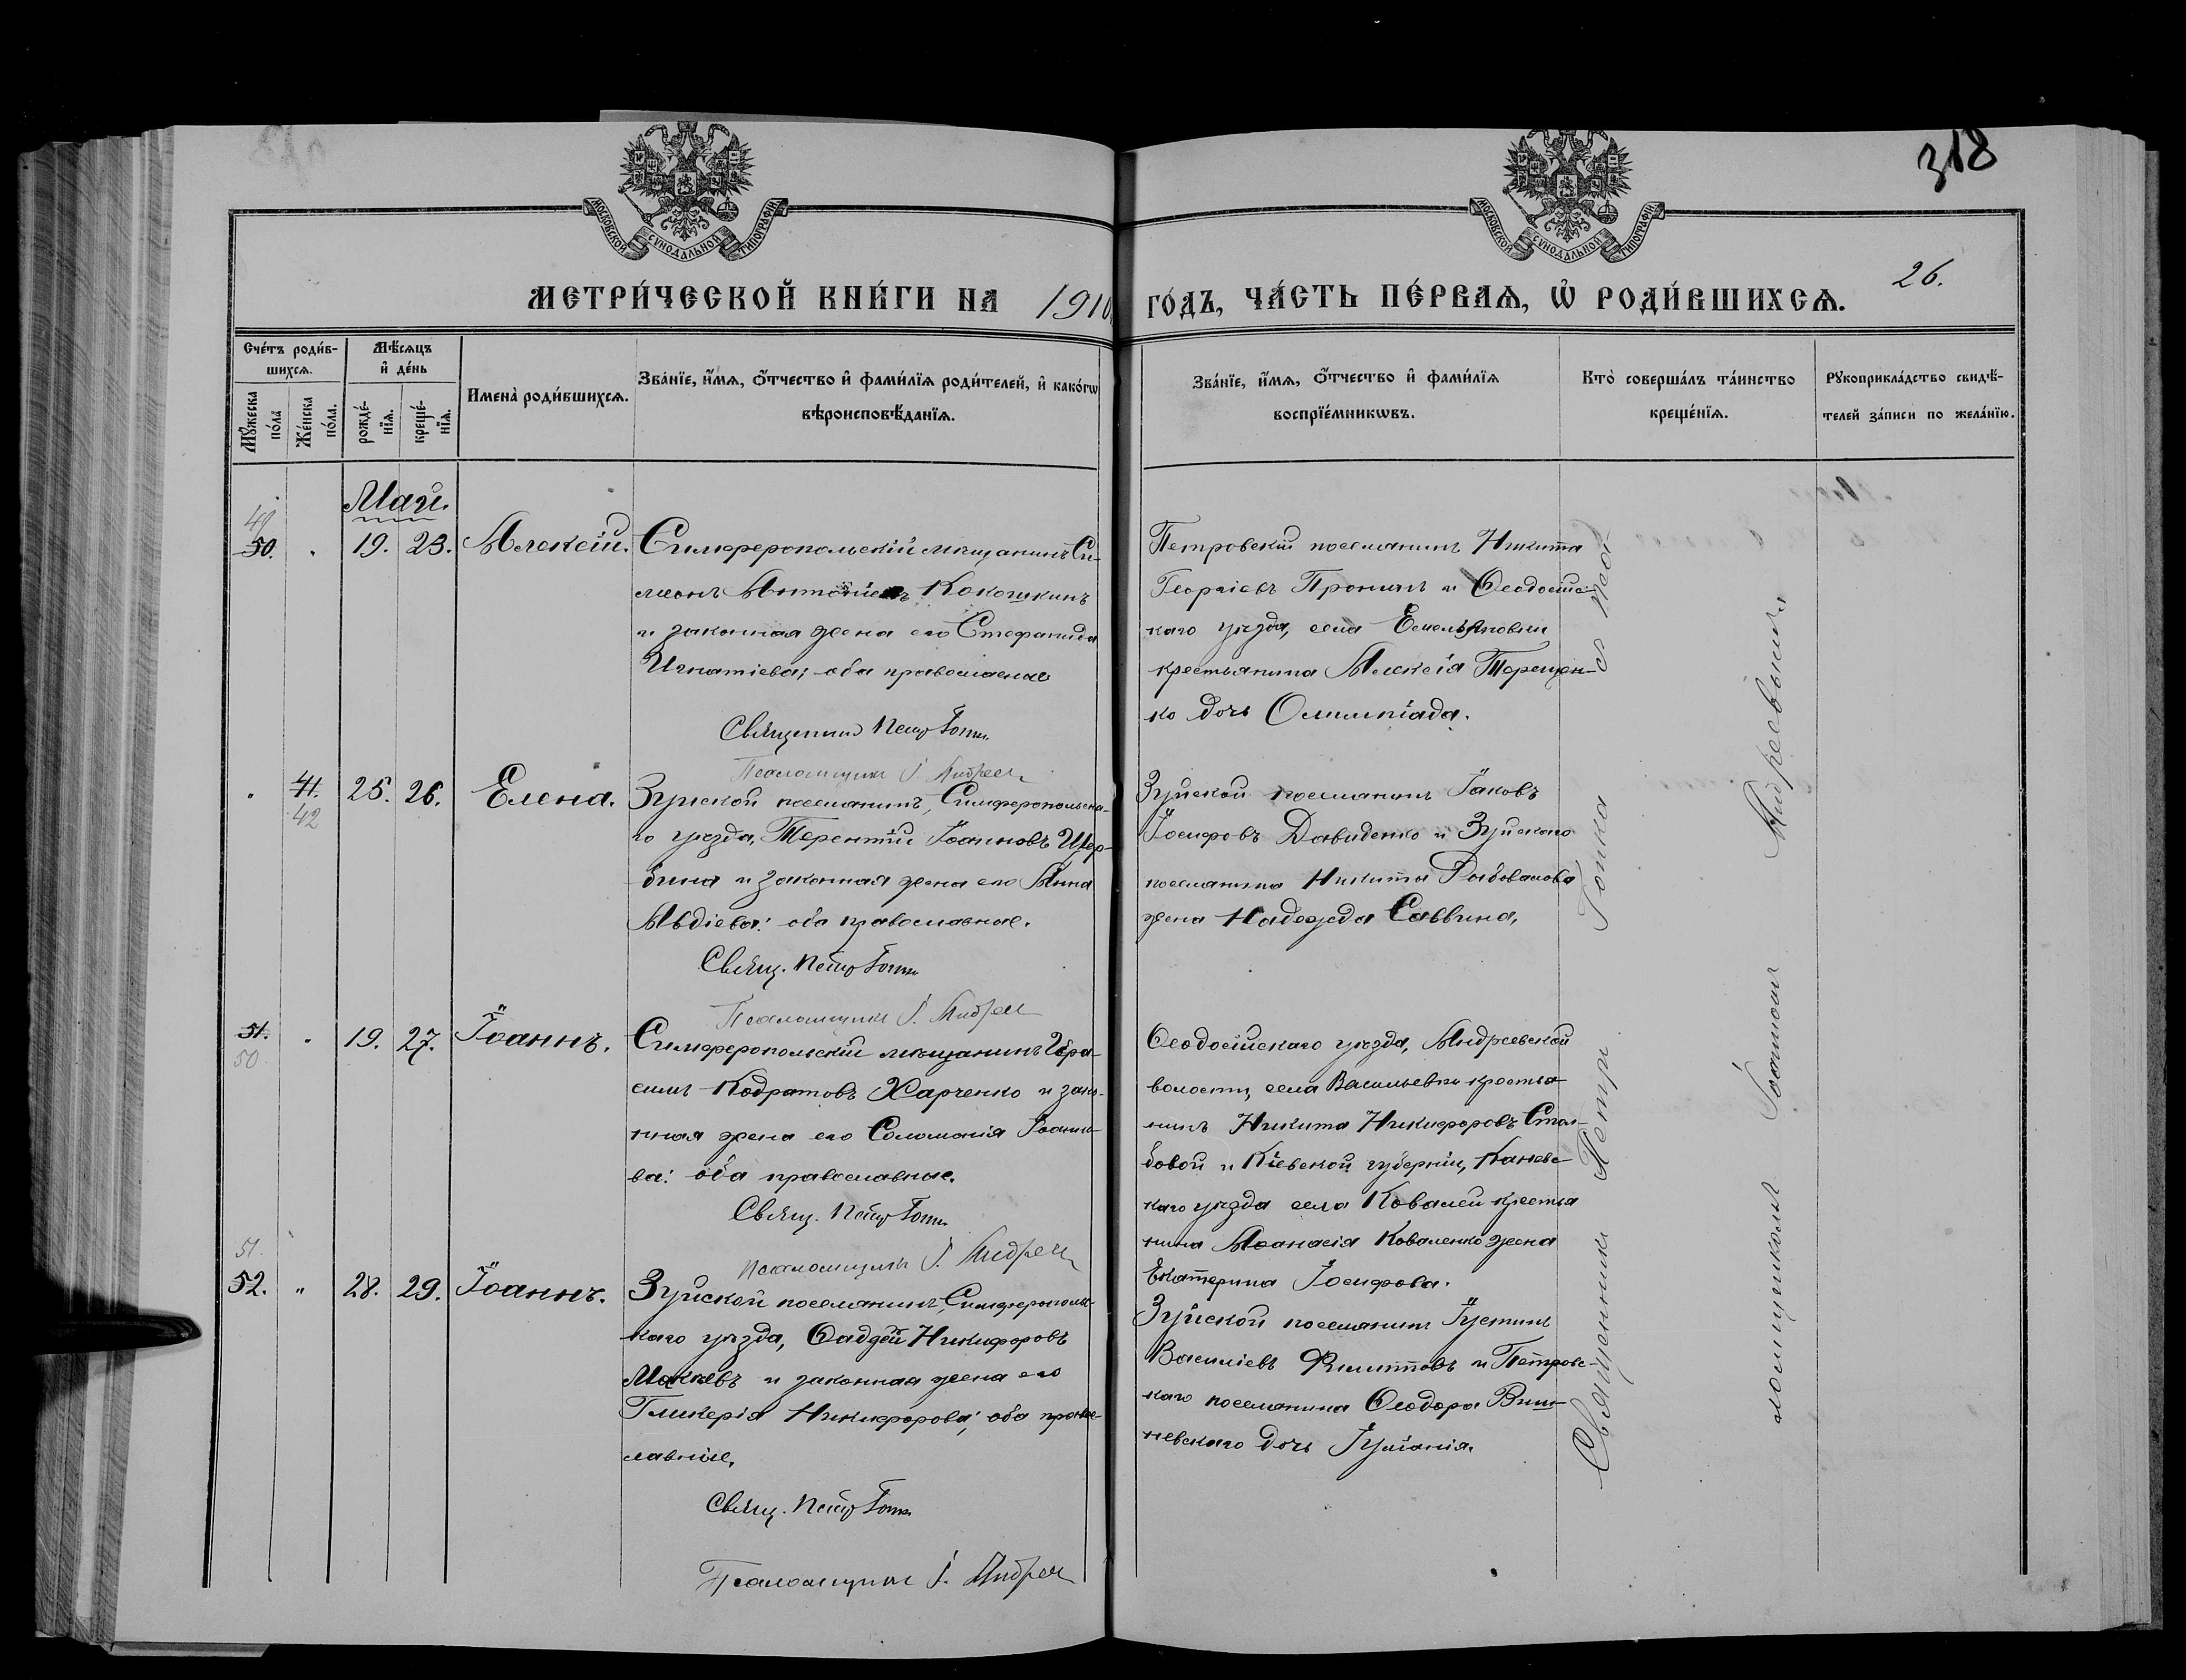 318
МОСКОВСКОЙ СУНОДАЛЬНОЙ ТИПОГРАФІИ
МОСКОВСКОЙ СУНОДАЛЬНОЙ ТИПОГРАФІИ
26.
МЕТРИ́ЧЕСКОЙ КНИ́ГИ НА 1910 ГО́ДЪ, ЧА́СТЬ ПЕ́РВАѦ, Ѡ҆ РОДИ́ВШИХСѦ.
Сче́тъ роди́в-
шихсѧ.
Мꙋ́жеска по́ла
Же́нска по́ла.
Мѣ́сѧцъ
и҆ де́нь
рожде́-
нїѧ.
креще́-
нїѧ.
Имена̀ роди́вшихсѧ.
Зва́нїе, и҆́мѧ, ѻ҆́тчество и҆ фами́лїѧ роди́телей, и҆ како́гѡ
вѣроисповѣ́данїѧ.
Зва́нїе, и҆́мѧ, ѻ҆́тчество и҆ фами́лїѧ
воспрїе́мникѡвъ.
Кто̀ соверша́лъ та́инство
креще́нїѧ.
Рꙋкоприкла́дство свидѣ́-
телей за́писи по жела́нїю.
Май.
49
50. " 19. 23. Алексій.
Симферопольскій мѣщанинъ Си-
меонъ Антоніевъ Кокошкинъ
и законная жена его Стефанида
Игнатіева; оба православные
Священникъ Петръ
Псаломщикъ І. Андрее
Петровскій поселянинъ Никита
Георгіевъ Пронинъ и Ѳеодосійс-
каго уѣзда, села Емельяновки
крестьянина Алексія Терещен-
ко дочь Олимпіада.
" 41. 25. 26. Елена.
42
Зуйской поселянинъ, Симферопольска-
го уѣзда, Терентій Іоанновъ Щер-
бина и законная жена его Анна
Авдіева: оба православные.
Свящ. Петръ
Псаломщикъ І. Андрее
Зуйской поселянинъ Іаковъ
Іосифовъ Давиденко и Зуйскаго
поселянина Никиты
жена Надежда Саввина,
51. " 19. 27. Іоаннъ.
50
Симферопольскій мѣщанинъ Гера-
симъ Кодратовъ Харченко и зако-
нная жена его Соломонія Іоанно-
ва: оба православные.
Свящ. Петръ
Псаломщикъ І. Андрее
Ѳеодосійскаго уѣзда, Андреевской
волости, села Васильевки крестья-
нинъ Никита Никифоровъ Стол-
бовой и Кіевской губерніи, Каневс-
каго уѣзда села Ковалей крестья
нина Аѳанасія Коваленко жена
Екатерина Іосифова.
51.
52. " 28. 29. Іоаннъ.
Зуйской поселянинъ, Симферополь-
каго уѣзда, Ѳаддей Никифоровъ
Мокіевъ и законная жена его
Гликерія Никифорова; оба право-
славные.
Свящ. Петръ
Псаломщикъ І. Андрее
Зуйской поселянинъ Іустинъ
Василіевъ Филиповъ и Петровс-
каго поселянина Ѳеодора Виш-
невскаго дочь Іуліанія.
Священникъ Петръ
псаломщикомъ Іоанномъ Андреевымъ